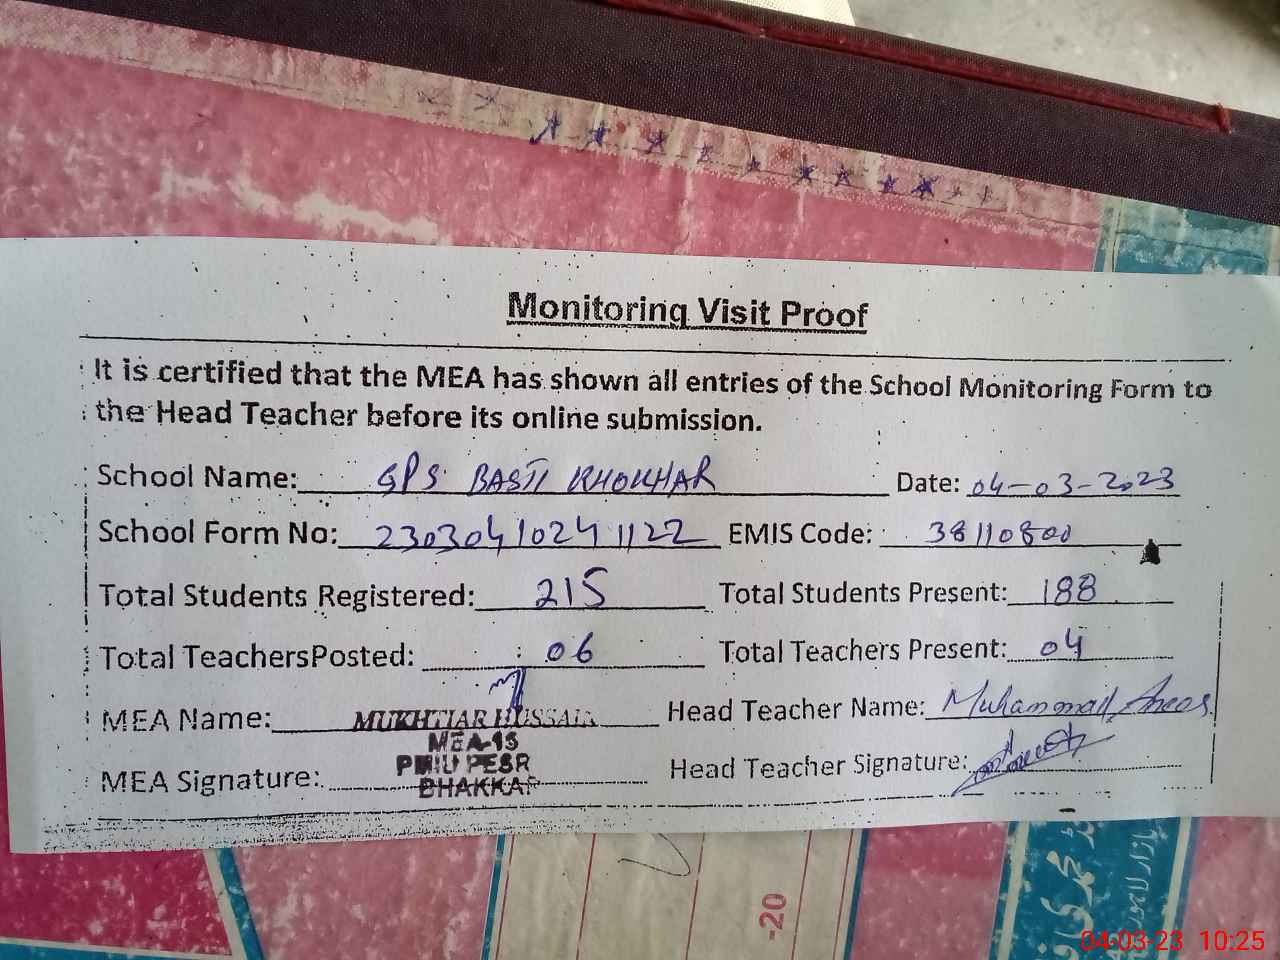 Monitoring Visit Proof
It is certified that the MEA has shown all entries of the School Monitoring Form to
the Head Teacher before its online submission.
School Name: GPS BASTI KHOKHAR Date: 04-03-2023
School Form No: 23030410241122 EMIS Code: 38110800
Total Students Registered: 215 Total Students Present: 188
Total TeachersPosted: 06 Total Teachers Present: 04
MEA Name: MUKHTIAR HUSSAIN Head Teacher Name: Muhammad Anees
MEA-13
PMIU PESR
MEA Signature: BHAKKAR Head Teacher Signature:
-20
04-03-23 10:25